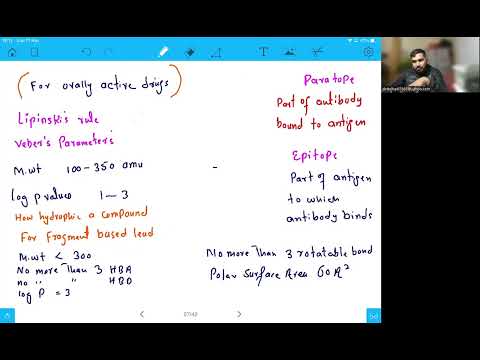 (For orally active drugs)
Lipinski's rule
Veber's Parameters
M.wt 100-350 amu -
log p values 1-3
How hydrophic a compound
For fragment based lead
M.wt < 300
No more than 3 HBA
no " " HBD
log P = 3
Paratope
Part of antibody
bound to antigen
Epitope
Part of antigen
to which
antibody binds
No more than 3 rotatable bond
Polar Surface Area 60 A²
07:43